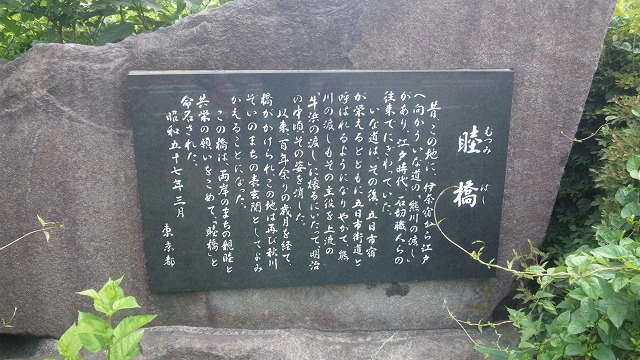 むつみ
睦
ばし
橋
昔、この地に、伊奈宿から江戸
へ向かういな道の「熊川の渡し」
があり、江戸時代、石切職人らの
往来でにぎわっていた。
いな道は、その後、五日市宿
が栄えるとともに五日市街道と
呼ばれるようになりやがて、熊
川の渡しもその主役を上流の
「牛浜の渡し」に譲るにいたって、明治
の中頃その姿を消した。
以来、百年余りの歳月を経て、
橋がかけられ、この地は再び秋川
ぞいのまちの表玄関としてよみ
がえることになった。
この橋は、両岸のまちの親睦と
共栄の願いをこめて、「睦橋」と
命名された。
昭和五十七年三月
東京都